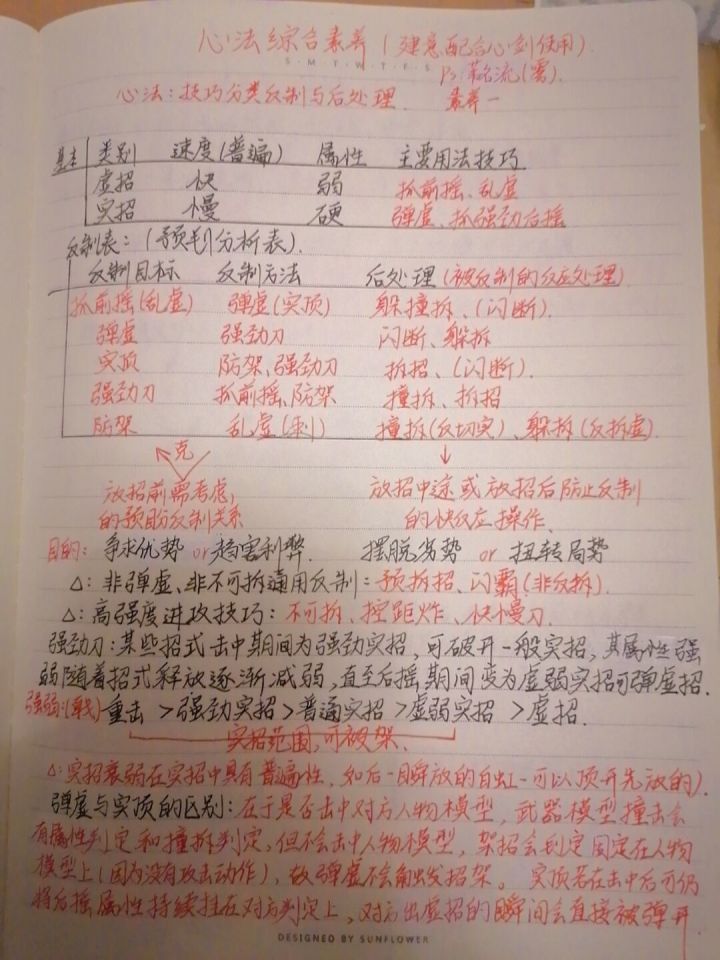 心法综合素养(建意配合心剑使用).
S M T W T F S
Ps 流(雲).
心法:技巧分类反制与后处理. 素养一
基本 类别 速度(普遍) 属性 主要用法技巧
虚招 快 弱 抓前摇、乱虚
实招 慢 硬 弹虚、抓强劲后摇
反制表:(预判分析表).
反制目标 反制方法 后处理(被反制的反应处理)
抓前摇(乱虚) 弹虚(实顶) 躲撞拆、(闪断).
弹虚 强劲刀 闪断、躲拆
实顶 防架、强劲刀 拆招、(闪断).
强劲刀 抓前摇、防架 撞拆、拆招
防架 乱虚(刺) 撞拆(反切实)、躲拆(反拆虚).
克
放招前需考虑, 放招中途或放招后防止反制
的预防反制关系 的快反应操作.
目的: 争求优势 or 趋害利弊. 摆脱劣势 or 扭转局势
△: 非弹虚、非不可拆通用反制: 预拆招、闪霸(非反拆).
△: 高强度进攻技巧: 不可拆、控距炸、快慢刀.
强劲刀: 某些招式击中期间为强劲实招, 可破开一般实招, 其属性强
弱随着招式释放逐渐减弱, 直至后摇期间变为虚弱实招可弹虚招.
强弱: 重击 > 强劲实招 > 普通实招 > 虚弱实招 > 虚招.
实招范围, 可被架.
△: 实招衰弱在实招中具有普遍性, 如后一瞬放的白虹一可以顶开先放的).
弹虚与实顶的区别: 在于是否击中对方人物模型, 武器模型撞击会
有属性判定和撞拆判定, 但不会击中人物模型, 架招会判定固定在人物
模型上(因为没有攻击动作), 故弹虚不会触发招架。 实顶若在击中后可仍
将后摇属性持续挂在对方判定上, 对方出虚招的瞬间会直接被弹开
DESIGNED BY SUNFLOWER